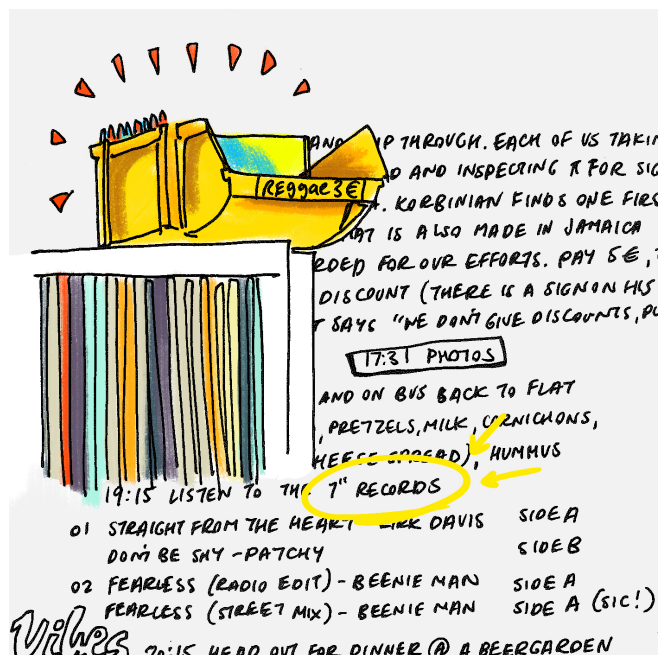 AND
P THROUGH. EACH OF US TAKIN
AND INSPECTING IT FOR SIG
REggae 3€
KORBINIAN FINDS ONE FIRS
HAT IS ALSO MADE IN JAMAICA
RDED FOR OUR EFFORTS. PAY 5€,
DISCOUNT (THERE IS A SIGN ON HIS
T SAYS "WE DON'T GIVE DISCOUNTS, PL
17:31 PHOTOS
AND ON BUS BACK TO FLAT
, PRETZELS, MILK, CORNICHONS,
HEESE SPREAD), HUMMUS
19:15 LISTEN TO THE 7" RECORDS
01 STRAIGHT FROM THE HEART - KIRK DAVIS SIDE A
DON'T BE SHY - PATCHY SIDE B
02 FEARLESS (RADIO EDIT) - BEENIE MAN SIDE A
FEARLESS (STREET MIX) - BEENIE MAN SIDE A (SIC!)
Vibes
20:15 HEAD OUT FOR DINNER @ A BEERGARDEN